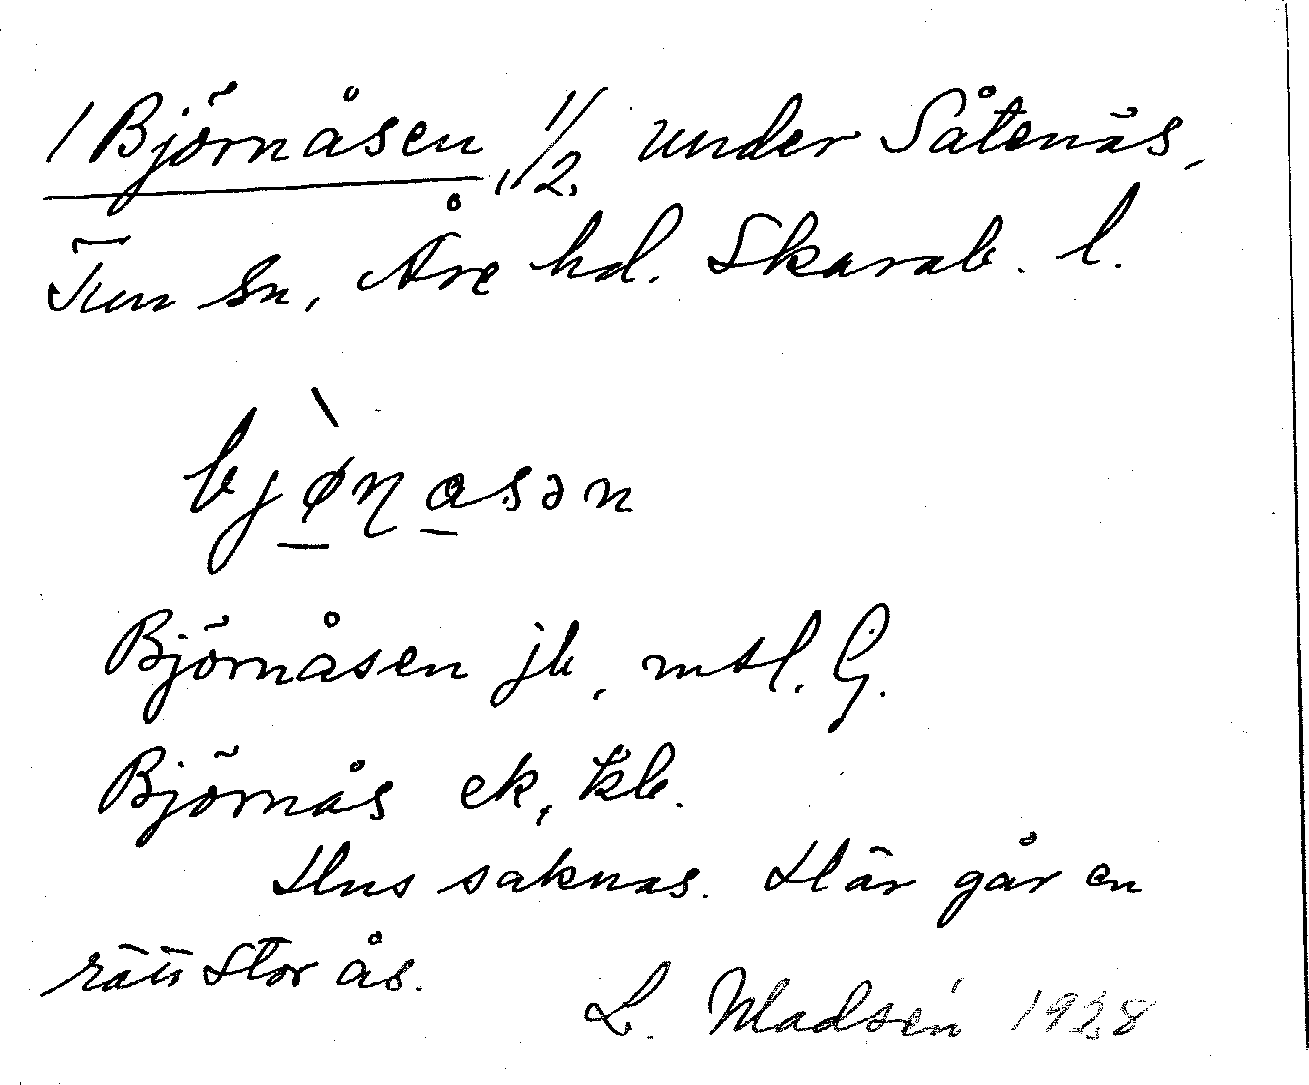 1 Björnåsen, 1/2 under Såtenäs,
Tun sn, Åre hd. Skarab. l.
bjø̀ɳasən
Björnåsen jb, mtl. G.
Björnås ek, kb.
Hus saknas. Här går en
rätt stor ås.
L. Madsén 1928